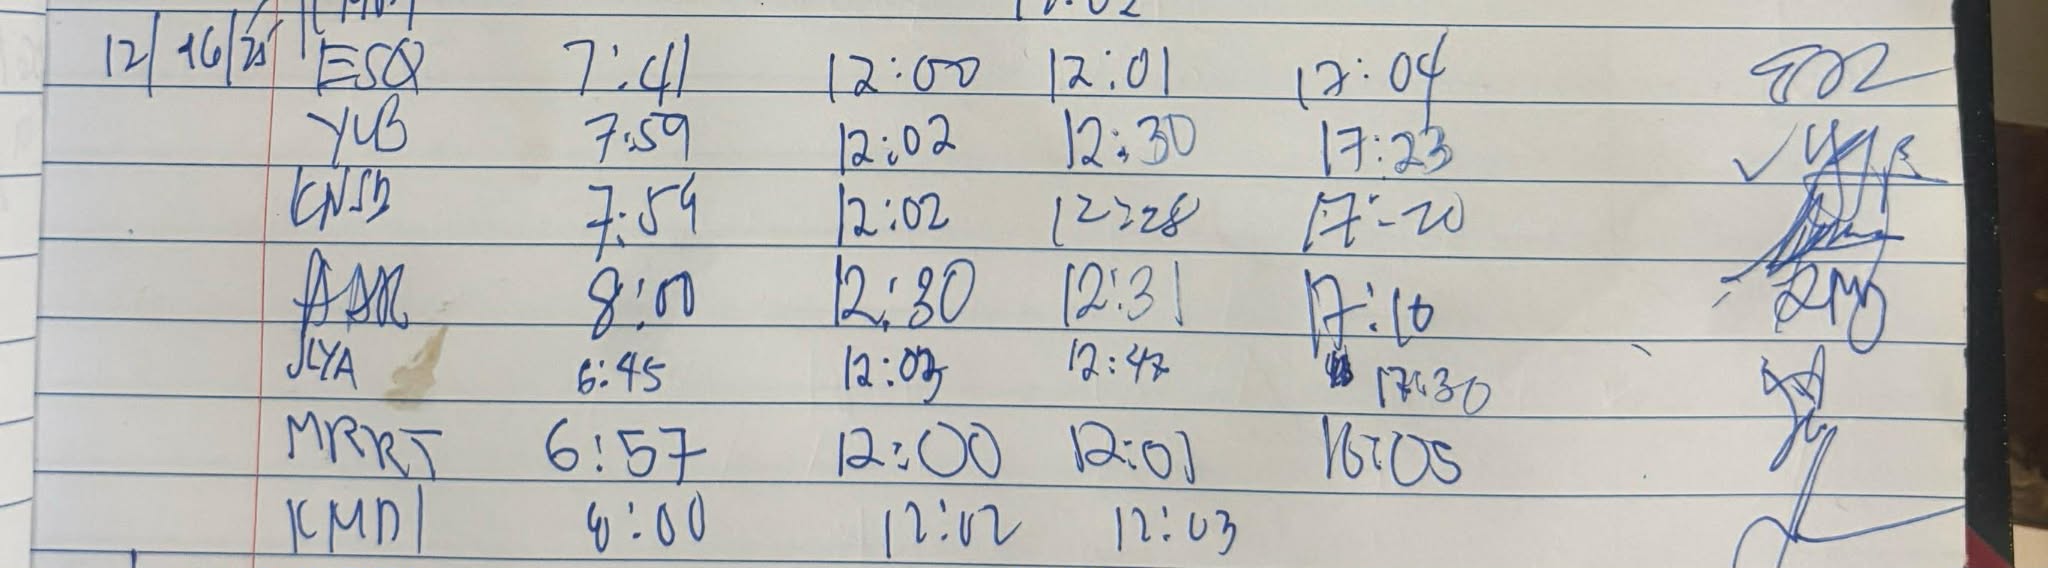 12/16/25 ESQ 7:41 12:00 12:01 17:04
YUB 7:59 12:02 12:30 17:23
KNSD 7:54 12:02 12:28 17:20
8:00 12:30 12:31 17:10
JLYA 6:45 12:03 12:47 17:30
MRRT 6:57 12:00 12:01 16:05
KMDI 8:00 12:02 12:03